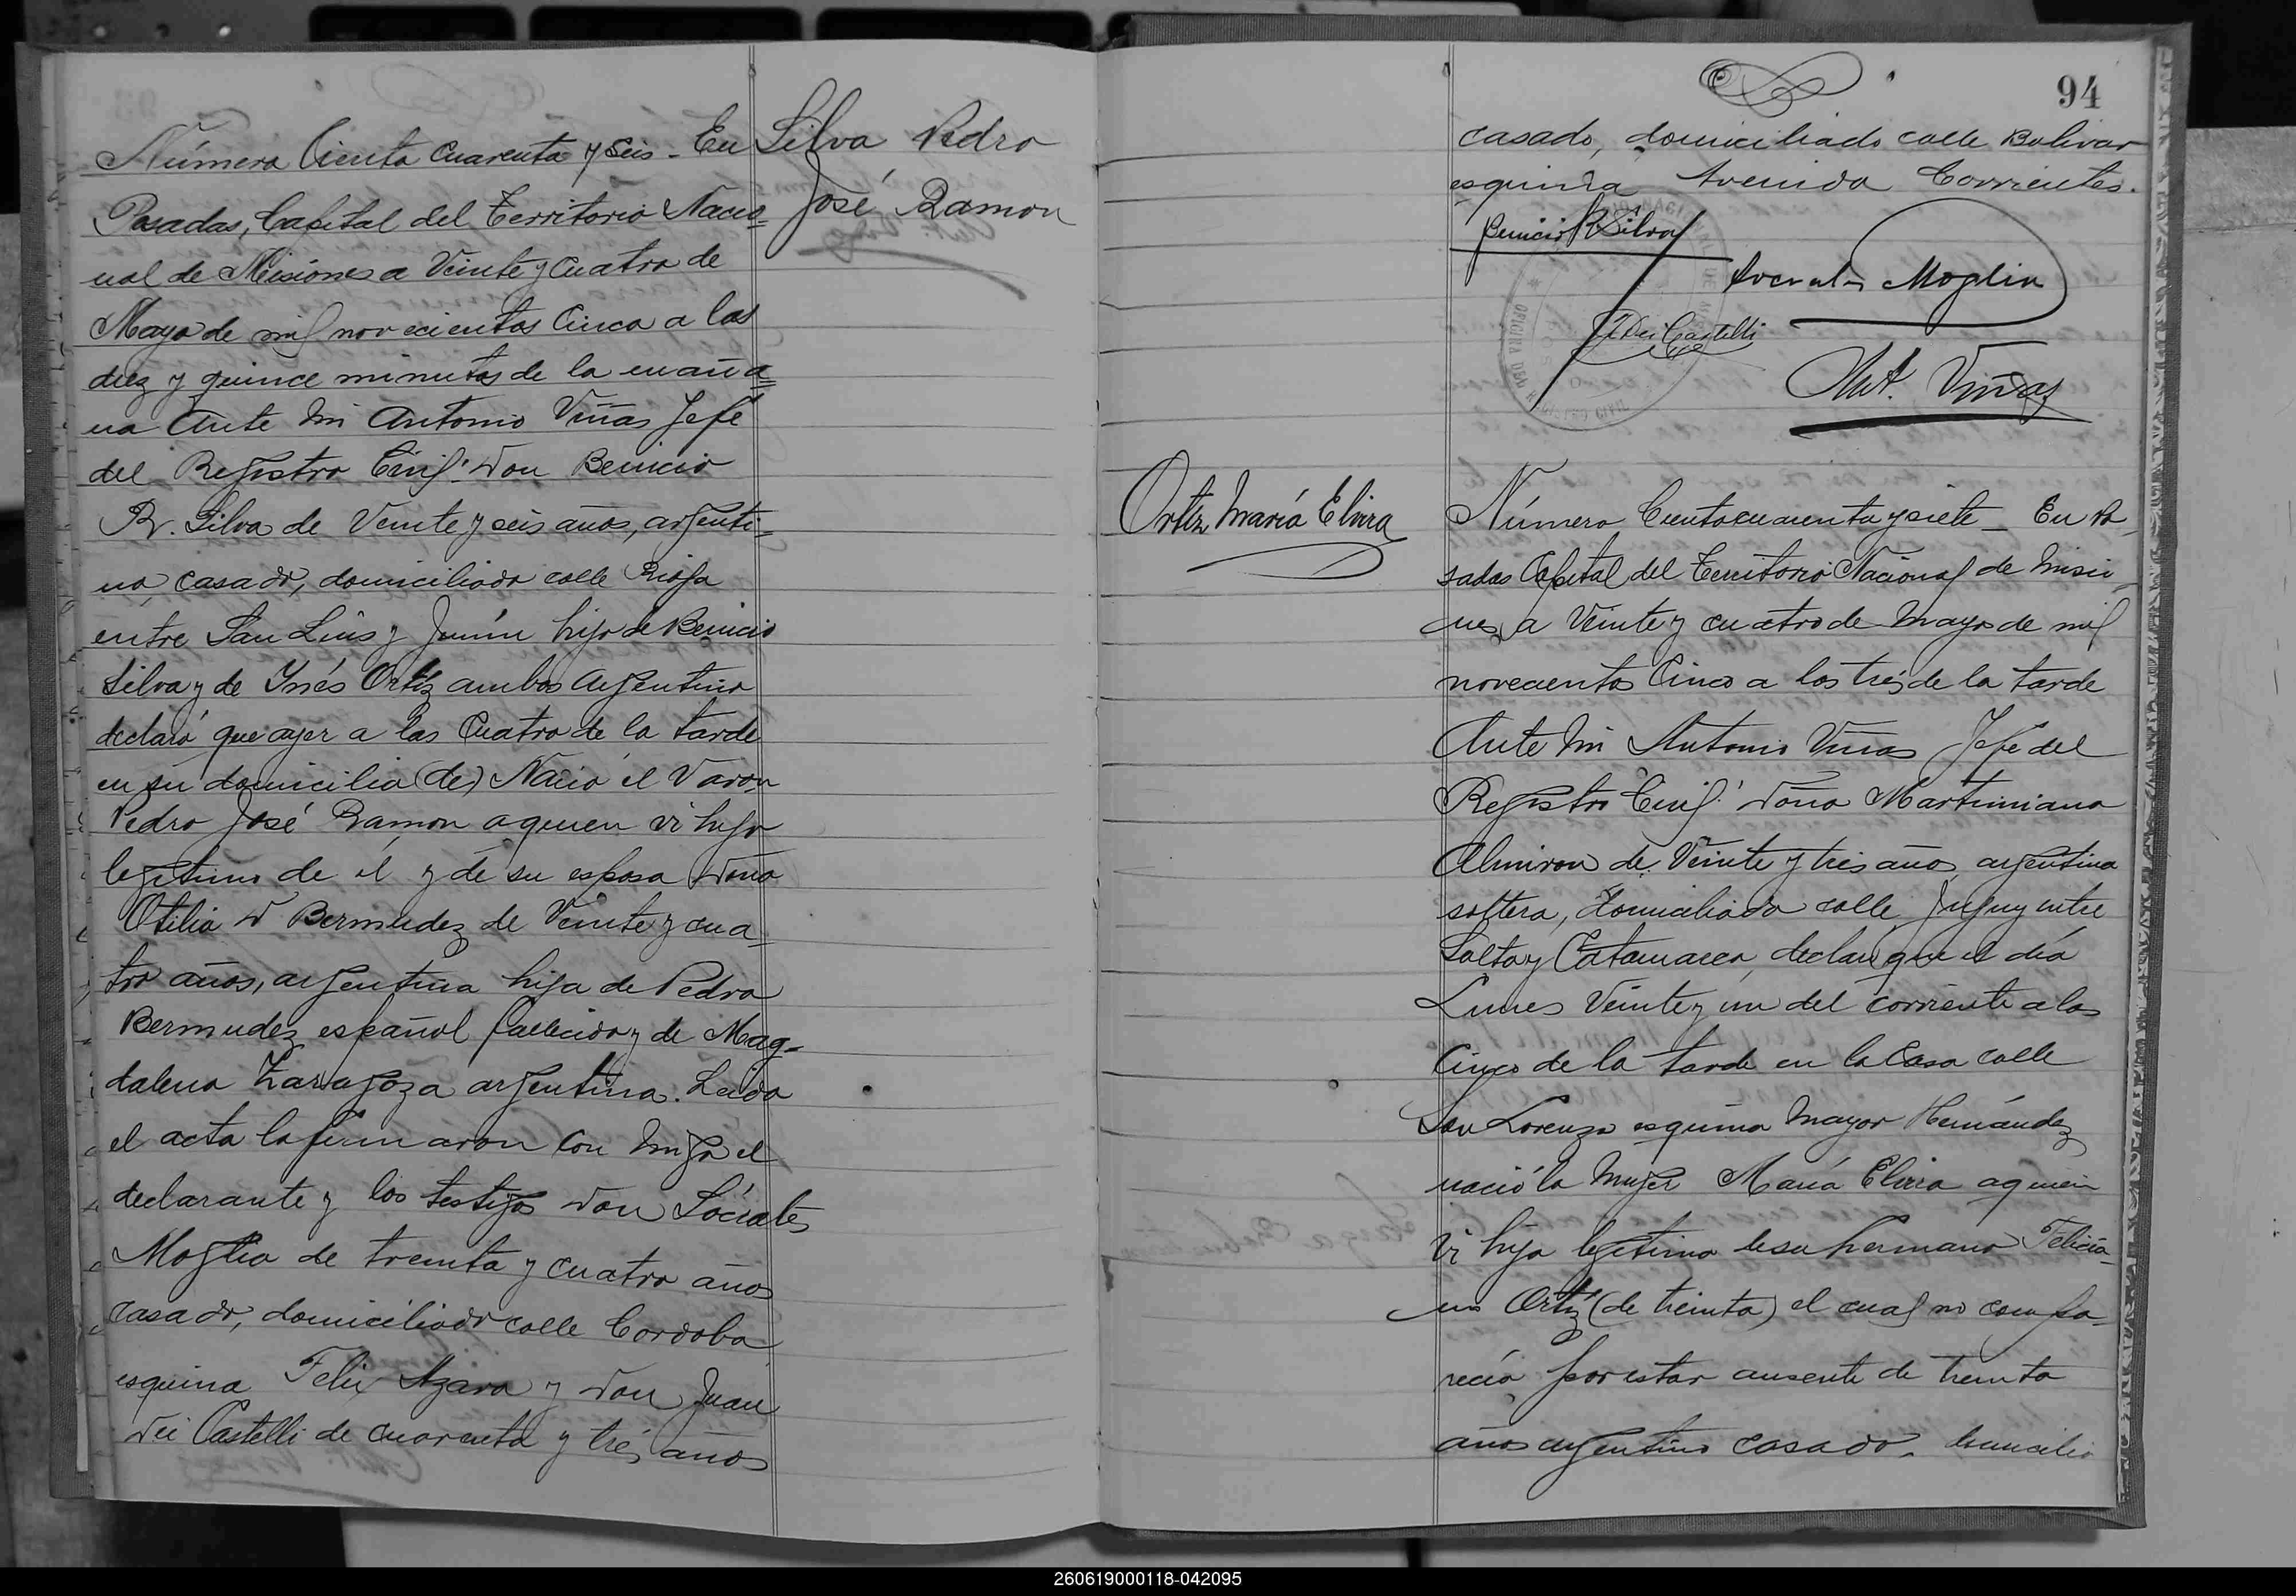 Número Ciento cuarenta y seis - En
Posadas, Capital del Territorio Nacio-
nal de Misiones a Veinte y cuatro de
Mayo de mil novecientos Cinco a las
diez y quince minutos de la maña=
na Ante mi Antonio Viñas Jefe
del Registro Civil: Don Benicio
R. Silva de Veinte y seis años, argenti-
no, casado, domiciliado calle Rioja
entre San Luis y Junín hijo de Benicio
Silva y de Ynés Ortiz ambos argentino
declaró que ayer a las Cuatro de la tarde
en su domicilio (de) Nació el Varon
Pedro José Ramon a quien vi hijo
legitimo de él y de su esposa Doña
Otilia D Bermudez de Veinte y cua-
tro años, argentina hija de Pedro
Bermudez español fallecido y de Mag-
dalena Zaragoza argentina. Leida
el acta la firmaron con migo el
declarante y los testigos Don Sócrates
Moglia de treinta y cuatro años
casado, domiciliado calle Cordoba
esquina Felix Azara y Don Juan
Dei Castelli de cuarenta y trés años
Silva Pedro
José Ramon
94
casado, domiciliado calle Bolivar
esquina Avenida Corrientes.
Benicio R Silva
Socrates Moglia
J Dei Castelli
Ant. Viñas
OFICINA DEL REGISTRO CIVIL
Ortiz María Elvira
Número Cientocuarenta y siete - En Po-
sadas Capital del Territorio Nacional de Misio-
nes a Veinte y cuatro de Mayo de mil
novecientos Cinco a las trés de la tarde
Ante mi Antonio Viñas Jefe del
Registro Civil: Doña Martiniana
Almiron de Veinte y tres años argentina
soltera, domiciliada calle Jujuy entre
Salta y Catamarca, declaró que el día
Lunes Veinte y un del corriente a las
Cinco de la tarde en la Casa calle
San Lorenzo esquina Mayor Hernández
nació la Mujer María Elvira a quien
vi hija legitima de su hermano Felicia-
no Ortiz (de treinta) el cual no compa-
reció por estar ausente de treinta
años argentino casado, domicilio